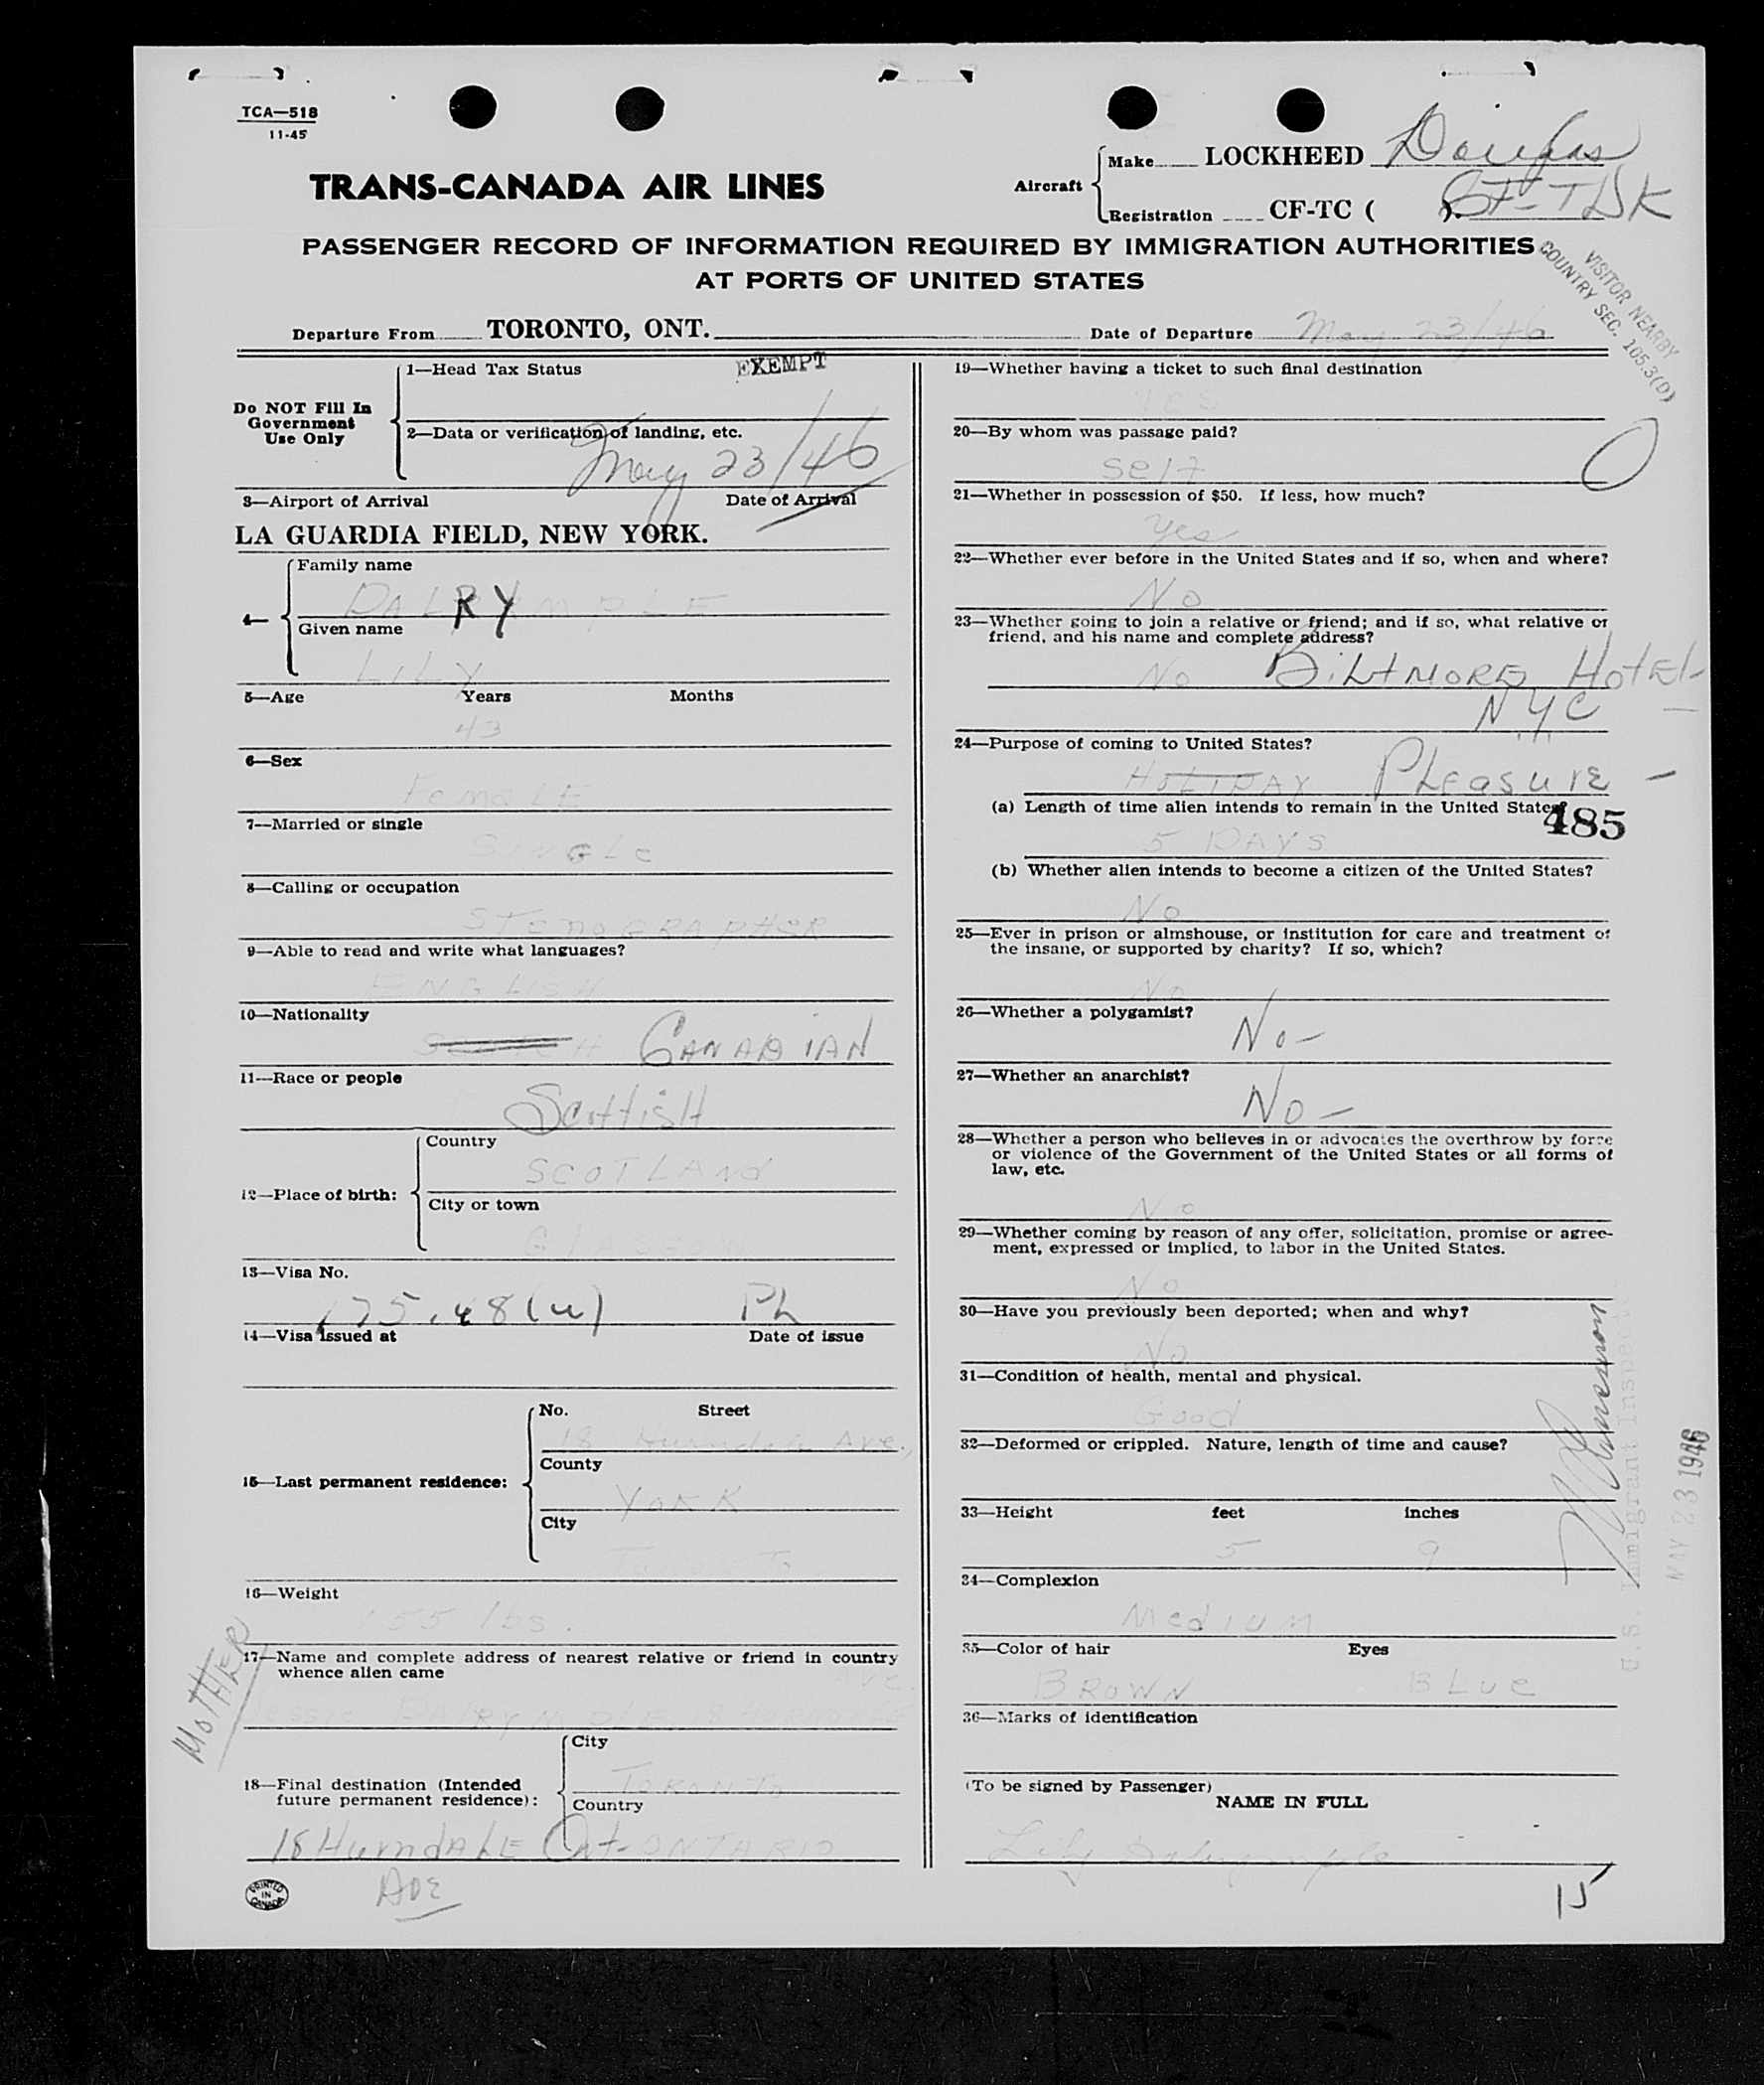 TCA—518
11-45
TRANS-CANADA AIR LINES
Aircraft
Make LOCKHEED Douglas
Registration CF-TC ( ). CF-TDK
PASSENGER RECORD OF INFORMATION REQUIRED BY IMMIGRATION AUTHORITIES
AT PORTS OF UNITED STATES
VISITOR NEARBY
COUNTRY SEC. 105.3(D)
Departure From TORONTO, ONT.
Date of Departure May 23/46
Do NOT Fill In
Government
Use Only
1—Head Tax Status EXEMPT
2—Data or verification of landing, etc.
May 23/46
3—Airport of Arrival Date of Arrival
LA GUARDIA FIELD, NEW YORK.
4—
Family name
DALRYMPLE
Given name
LILY
5—Age Years Months
43
6—Sex
FemaLE
7—Married or single
SINGLe
8—Calling or occupation
STENOGRAPHER
9—Able to read and write what languages?
ENGLISH
10—Nationality
SCOTCH CANADIAN
11—Race or people
ScottisH
12—Place of birth:
Country
SCOTLAND
City or town
GLASGOW
13—Visa No.
175.48(u) PL
14—Visa issued at Date of issue
15—Last permanent residence:
No. Street
18 Hurndale Ave.,
County
YORK
City
Toronto
16—Weight
155 lbs.
MOTHER
17—Name and complete address of nearest relative or friend in country
whence alien came
Ave.
Jessie DALRYMPLE
18—Final destination (Intended
future permanent residence):
City
TORONTO
Country
18 HurndALE Ont- ONTARIO
AvE
PRINTED
IN
CANADA
19—Whether having a ticket to such final destination
Yes
20—By whom was passage paid?
Self
21—Whether in possession of $50. If less, how much?
yes
22—Whether ever before in the United States and if so, when and where?
No
23—Whether going to join a relative or friend; and if so, what relative or
friend, and his name and complete address?
No BiLtMORE HotEL-
NYC
24—Purpose of coming to United States?
HOLIDAY PLeasurE -
(a) Length of time alien intends to remain in the United States?
485
5 DAYS
(b) Whether alien intends to become a citizen of the United States?
No
25—Ever in prison or almshouse, or institution for care and treatment of
the insane, or supported by charity? If so, which?
No
26—Whether a polygamist?
No-
27—Whether an anarchist?
No-
28—Whether a person who believes in or advocates the overthrow by force
or violence of the Government of the United States or all forms of
law, etc.
No
29—Whether coming by reason of any offer, solicitation, promise or agree-
ment, expressed or implied, to labor in the United States.
No
30—Have you previously been deported; when and why?
No
31—Condition of health, mental and physical.
Good
32—Deformed or crippled. Nature, length of time and cause?
33—Height feet inches
5 9
34—Complexion
Medium
35—Color of hair Eyes
BROWN BLue
36—Marks of identification
(To be signed by Passenger)
NAME IN FULL
Lily Dalrymple
15
U.S. Immigrant Inspector
MAY 23 1946